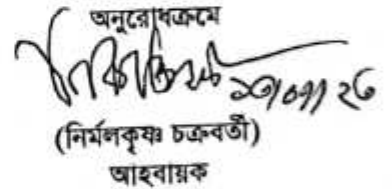 অনুরোধক্রমে
(নির্মলকৃষ্ণ চক্রবর্তী)
আহবায়ক